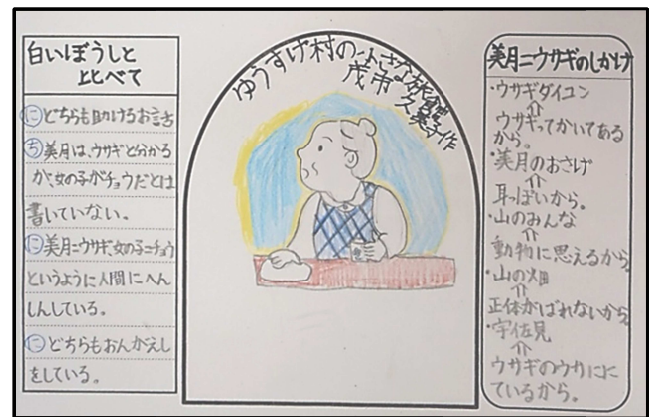 白いぼうしと
上とべて
に どちらも助けるお話
ち 美月は、ウサギと分かる
が、女の子がチョウだとは
書いていない。
に 美月=ウサギ、女の子=チョウ
というように人間にへん
しんしている。
に どちらもおんがえし
をしている。
ゆうすげ村の小さな旅館
茂市久美子作
美月=ウサギのしかけ
・ウサギダイコン
⇑
ウサギってかいてある
から。
・美月のおさげ
⇑
耳っぽいから。
・山のみんな
⇑
動物に思えるから
・山の畑
⇑
正体がばれないから
・宇佐見
⇑
ウサギのウサにに
ているから。